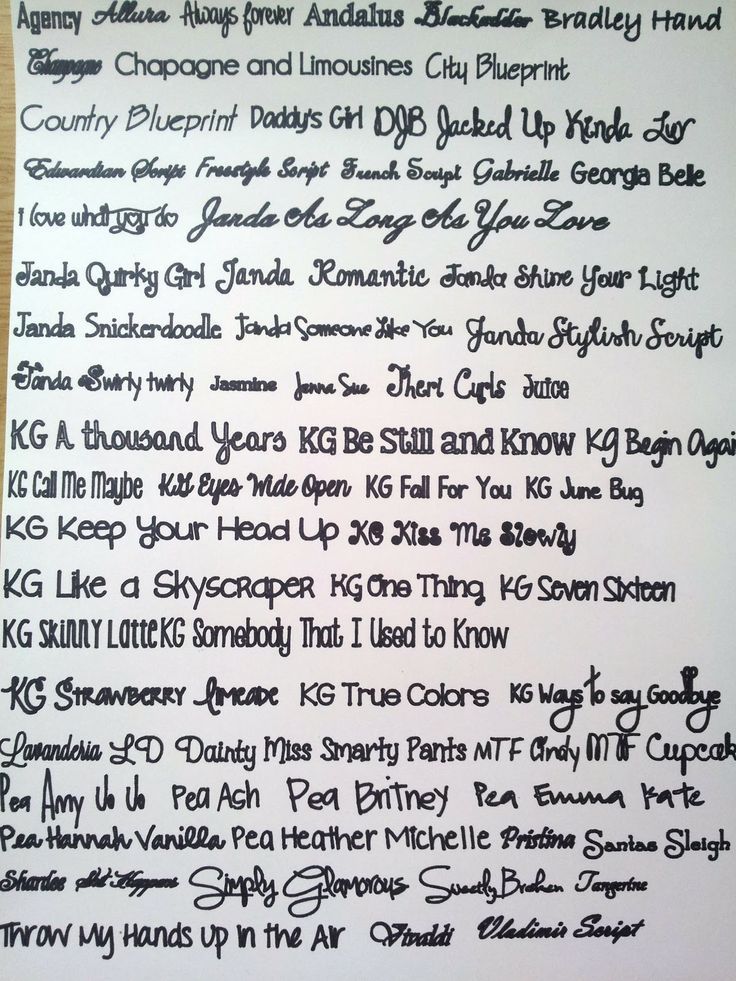 Agency Allura Always forever Andalus Blackadder Bradley Hand
Champagne Chapagne and Limousines City Blueprint
Country Blueprint Daddy's Girl DJB Jacked Up Kinda Luv
Edwardian Script Freestyle Script French Script Gabrielle Georgia Belle
i love what you do Janda As Long As You Love
Janda Quirky Girl Janda Romantic Janda Shine Your Light
Janda Snickerdoodle Janda Someone Like You Janda Stylish Script
Janda Swirly twirly Jasmine Jenna Sue Jheri Curls Juice
KG A thousand Years KG Be Still and Know KG Begin Agai
KG Call Me Maybe KG Eyes Wide Open KG Fall For You KG June Bug
KG Keep Your Head Up KG Kiss Me Slowly
KG Like a Skyscraper KG One Thing KG Seven Sixteen
KG Skinny Latte KG Somebody That I Used to Know
KG Strawberry Limeade KG True Colors KG Ways to say Goodbye
Lavanderia LD Dainty Miss Smarty Pants MTF Cindy MTF Cupcak
Pea Amy Pea Ash Pea Britney Pea Emma Kate
Pea Hannah Vanilla Pea Heather Michelle Pristina Santas Sleigh
Shardee Simply Glamorous Sweetly Broken Tangerine
Throw My Hands Up in the Air Vivaldi Vladimir Script